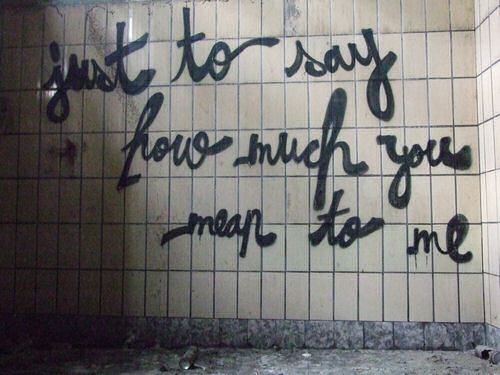 just to say
how much you
mean to me